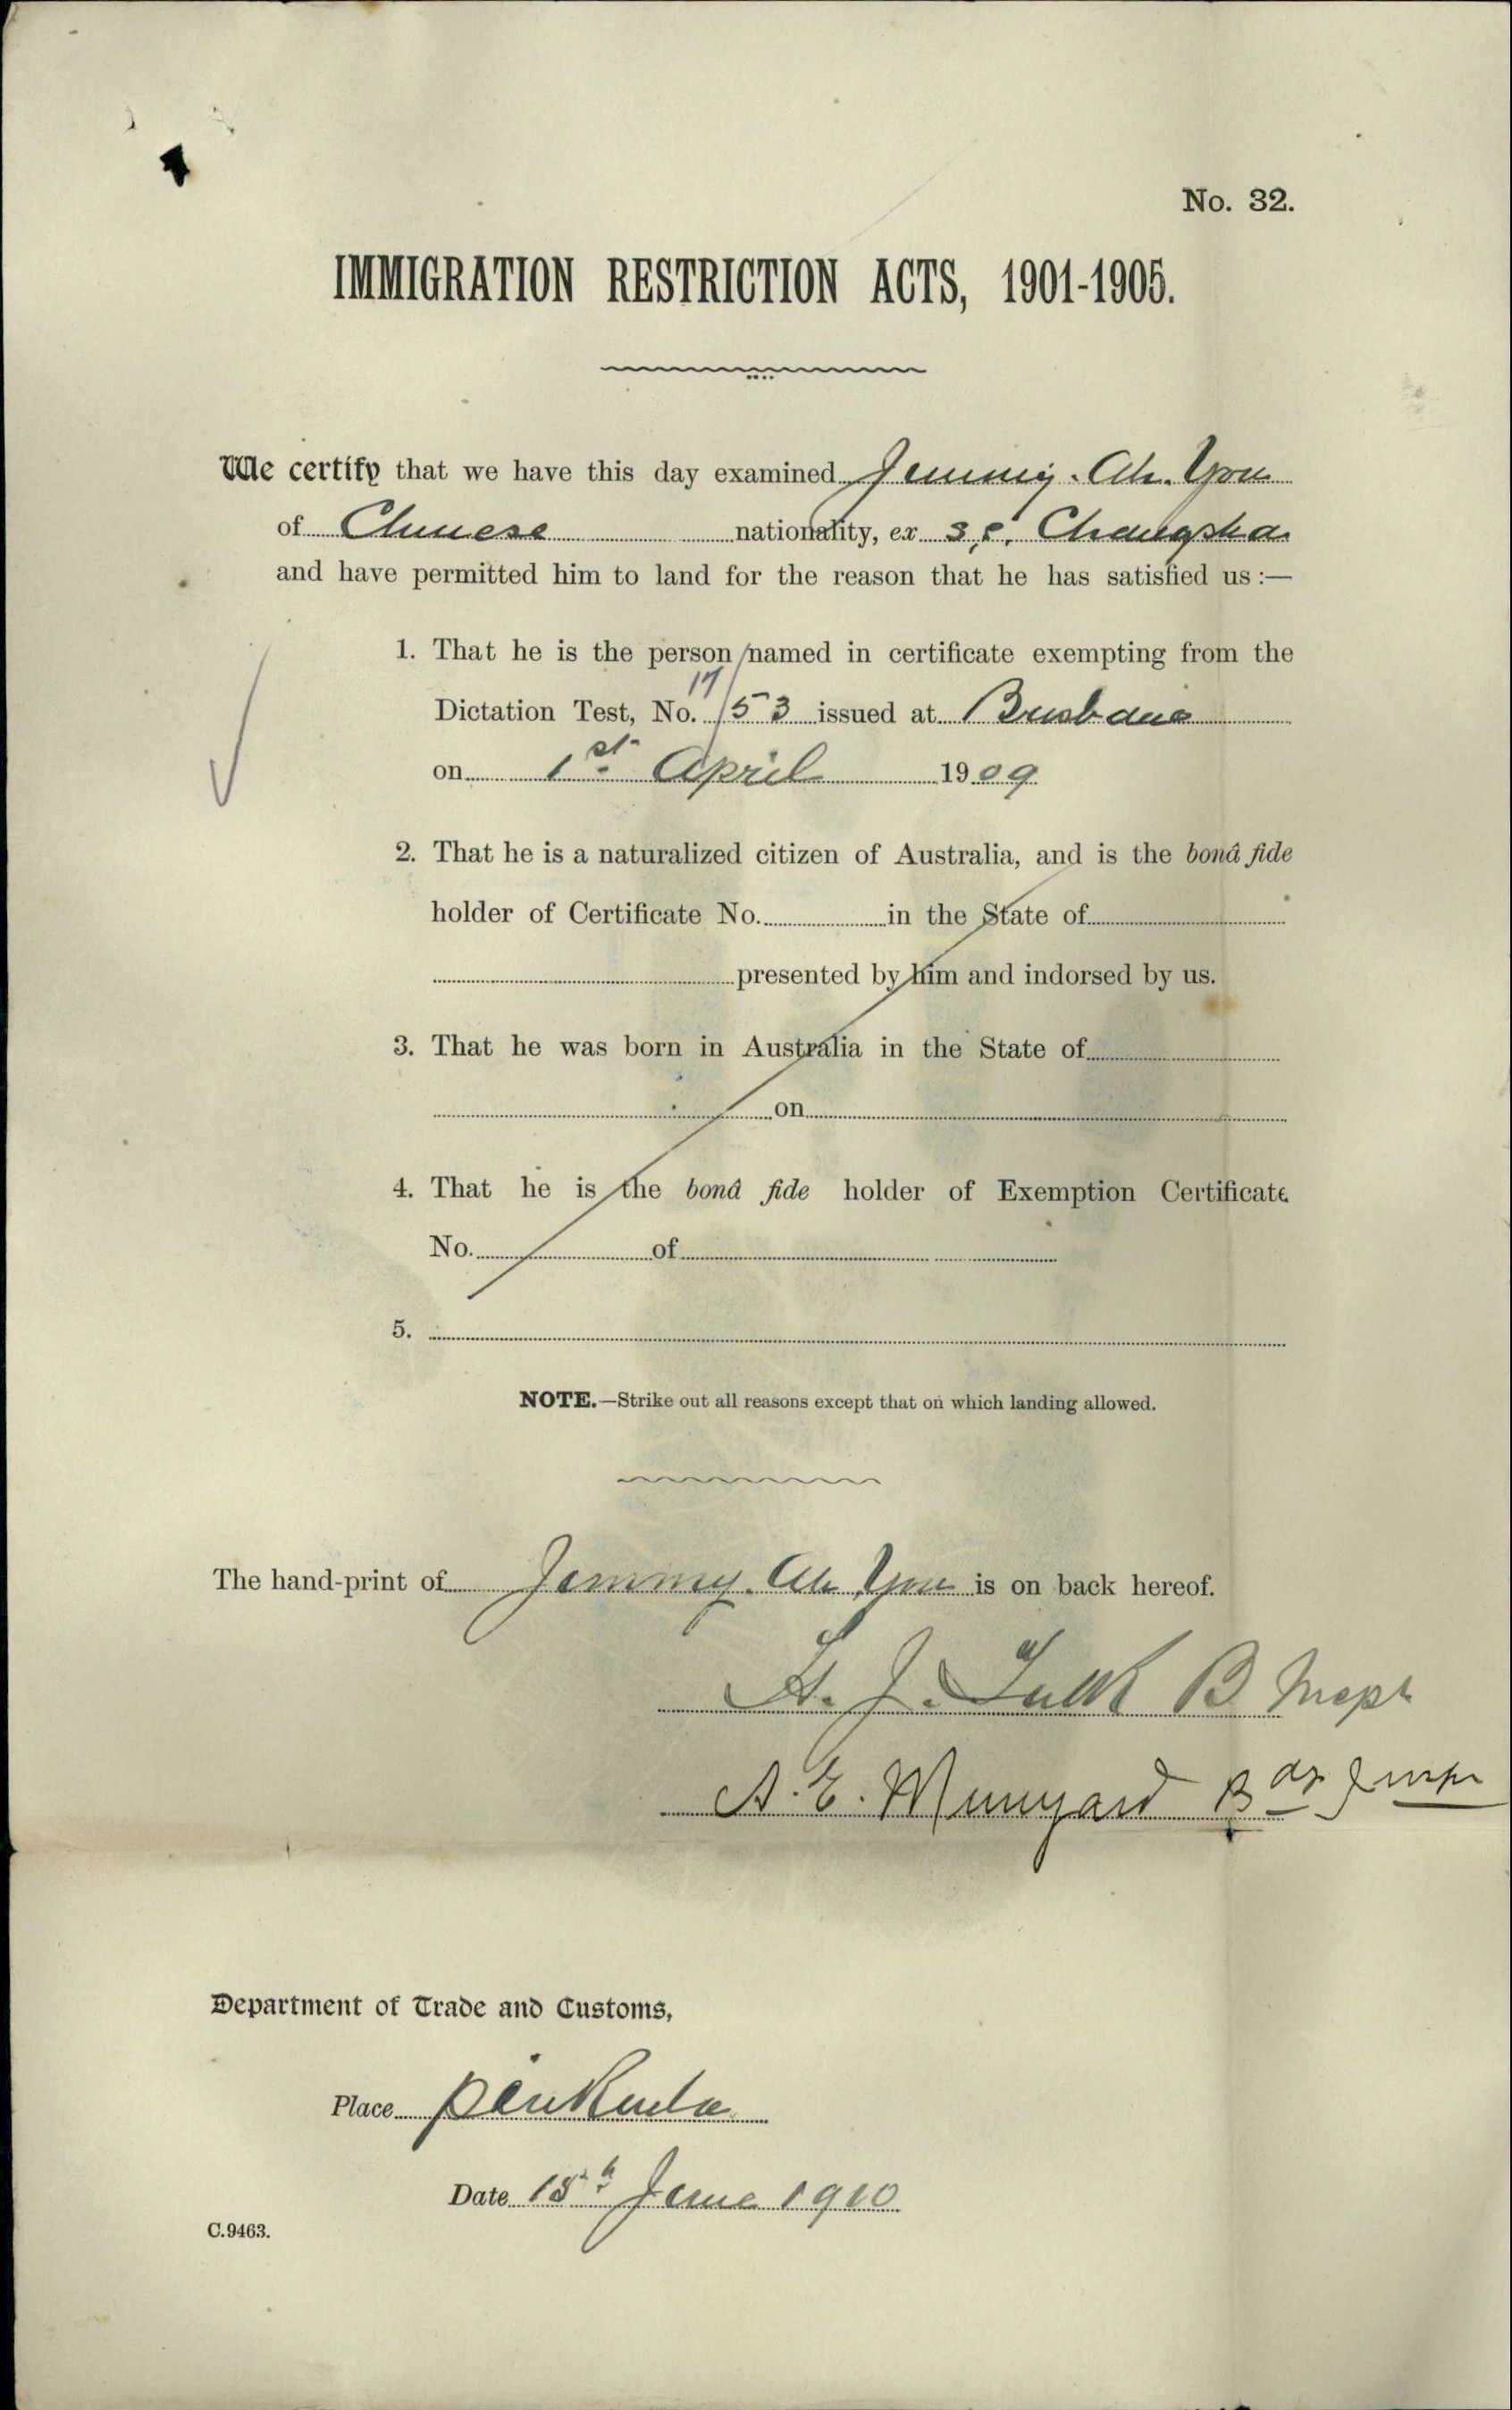 No. 32.
IMMIGRATION RESTRICTION ACTS, 1901-1905.
We certify that we have this day examined Jimmy. Ah. You
of Chinese nationality, ex s.s. Changsha
and have permitted him to land for the reason that he has satisfied us :—
1. That he is the person named in certificate exempting from the
17/
Dictation Test, No. 53 issued at Brisbane
on 1st April 1909
2. That he is a naturalized citizen of Australia, and is the bonâ fide
holder of Certificate No. in the State of
presented by him and indorsed by us.
3. That he was born in Australia in the State of
on
4. That he is the bonâ fide holder of Exemption Certificate
No. of
5.
NOTE.—Strike out all reasons except that on which landing allowed.
The hand-print of Jimmy. Ah You is on back hereof.
H. J. B Inspr
A. E. Munyard Bdg Inspr
Department of Trade and Customs,
Place Pinkenba
Date 15th June 1910
C.9463.